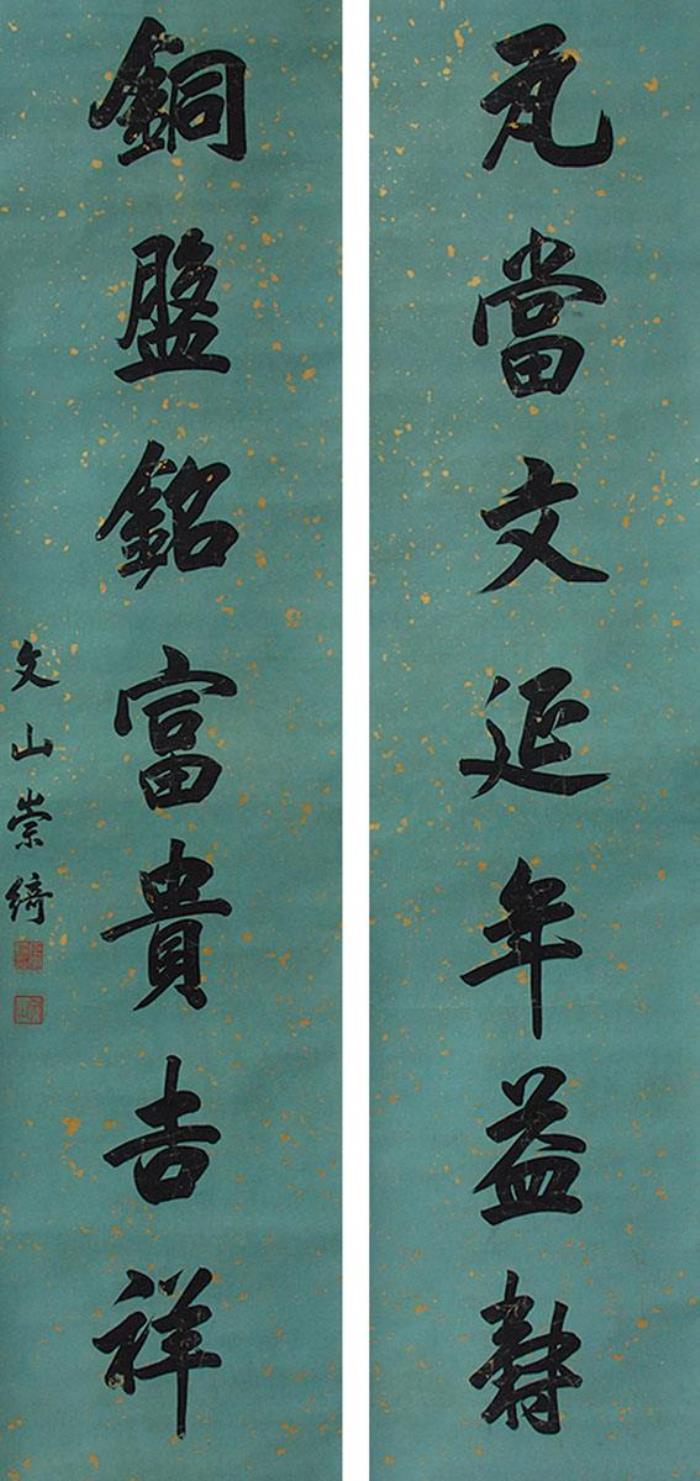 瓦當文延年益壽
銅盤銘富貴吉祥
文山崇綺